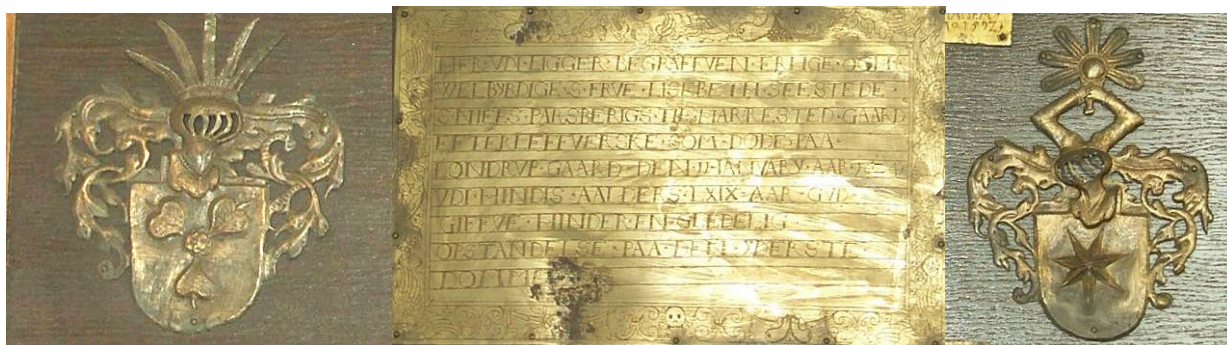 HER·VDI·LIGGER·BEGRAFFVEN·ERLIGE·OC
WELBYRDIGE·S·FRVE·LISEBETH·SEESTEDE·
S·NIELS·PARSBERIGS·TIL·HARRESTED·GAARD
EFTERLEFFVERSKE·SOM·DØDE·PAA·
LØNDRVP·GAARD·DEN·IANVARY·AAR
VDI·HINDIS·AALDERS·LXIX·AAR·GVD
GIFFVE·HINDER·EN·GLEDELIG
OPSTANDELSE·PAA·DEN·YDERSTE
DOMME